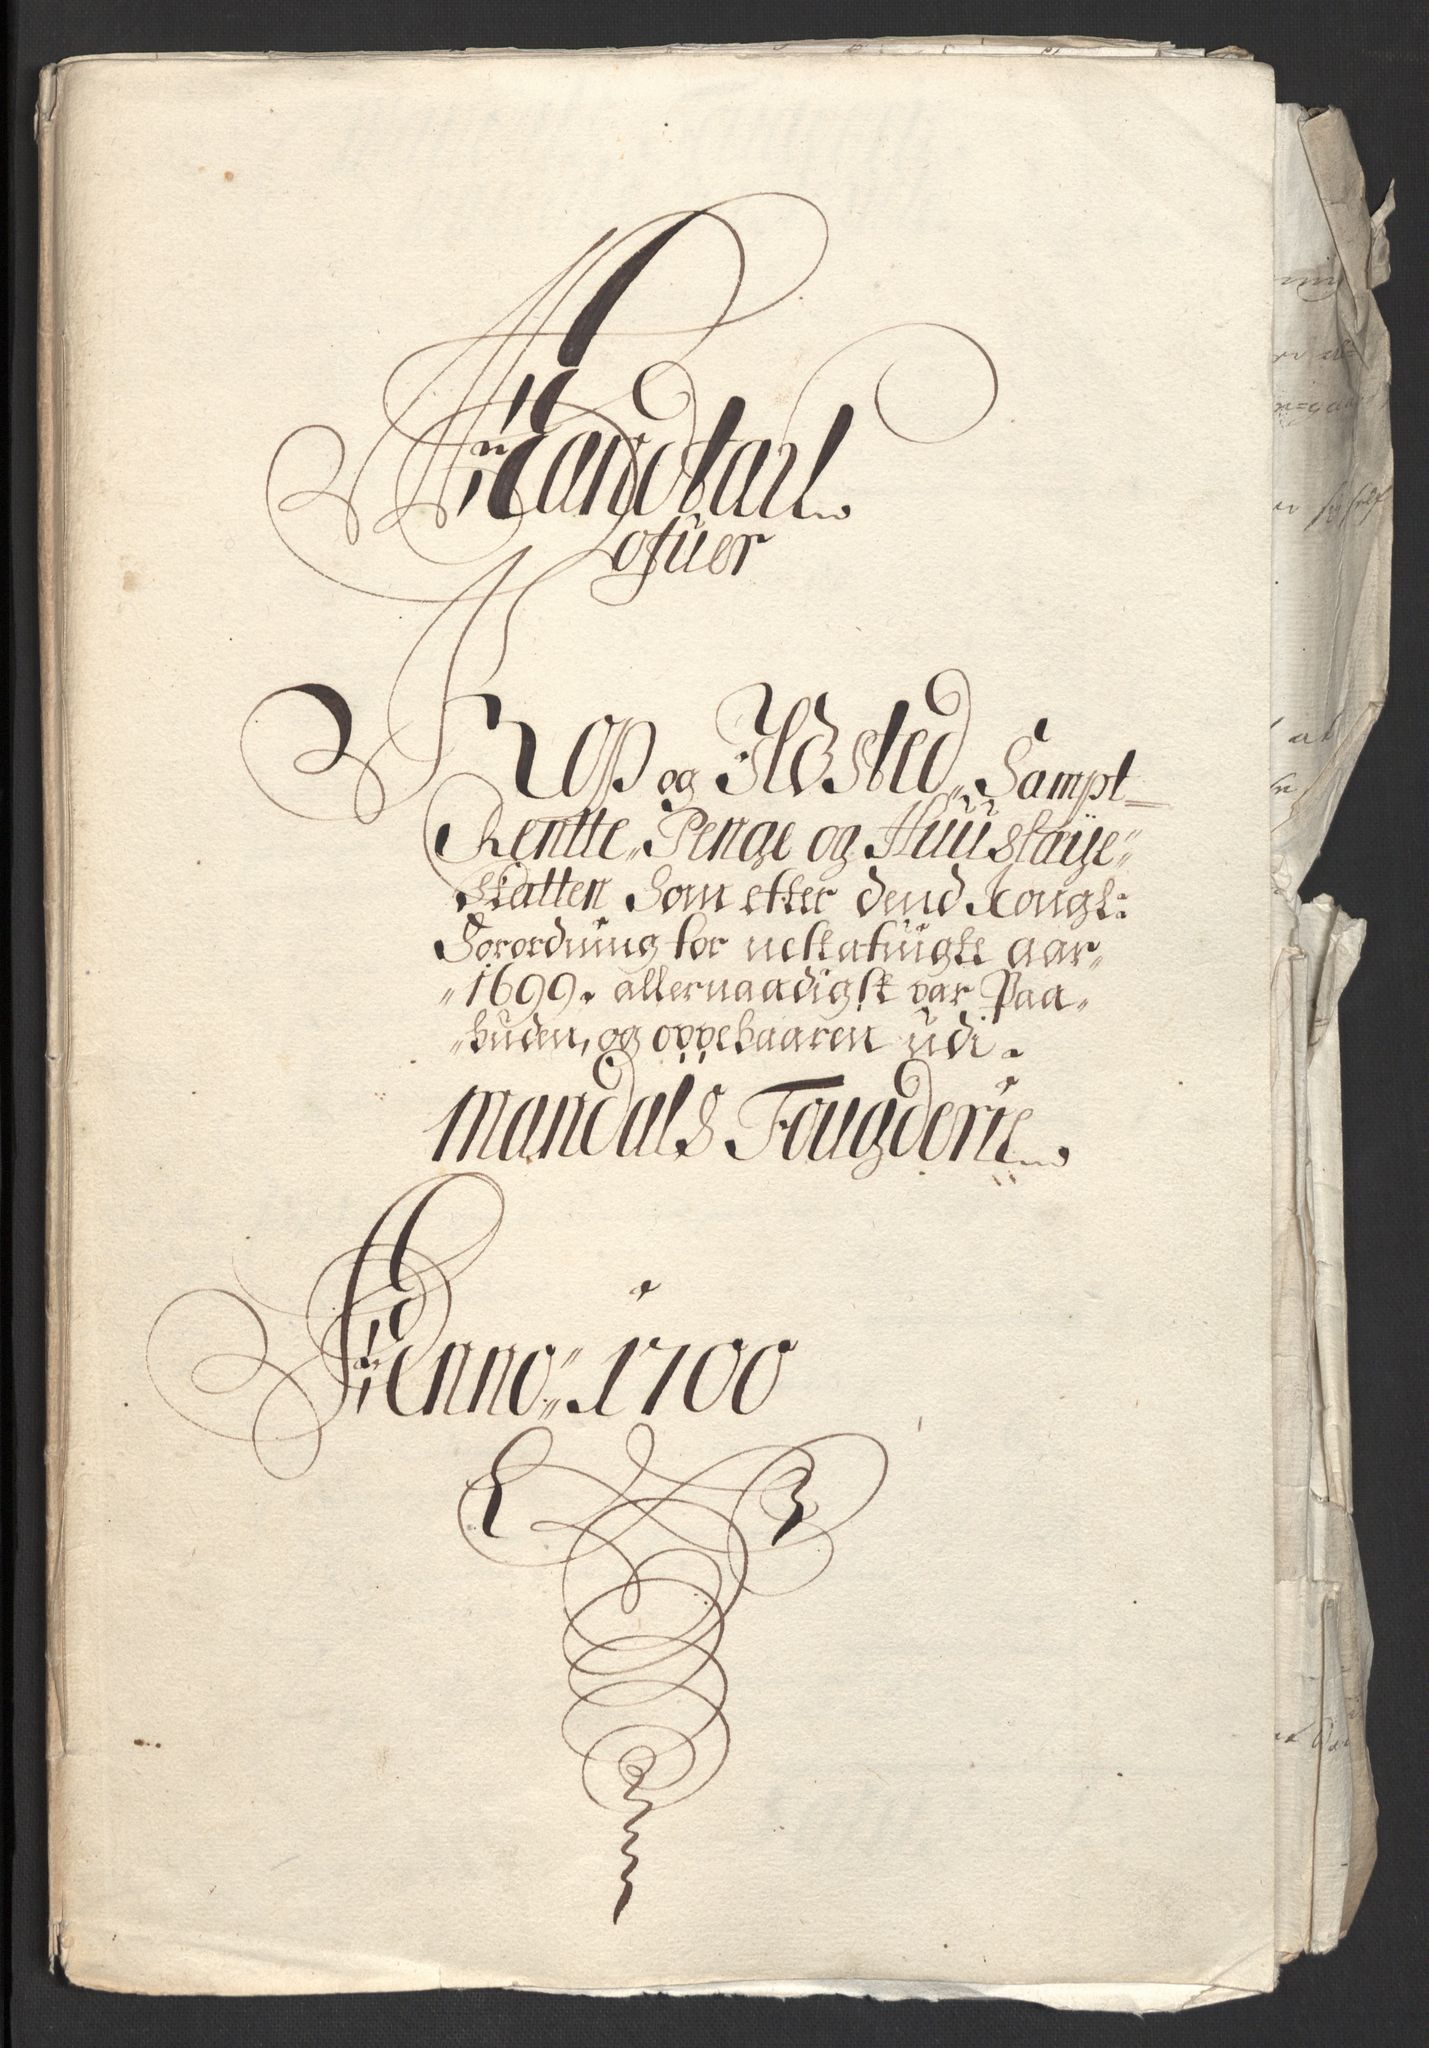 Mandtall
ofuer
Kop og Ildsted, Sampt
Rentte, Penge og Kuustaye
skatten Som efter dend Kongl:
Forordning for nestafuigte aar
1699. allernaadigst var Paa
buden, og oppebaaren udi
Mandals Fougderie
Anno 1700